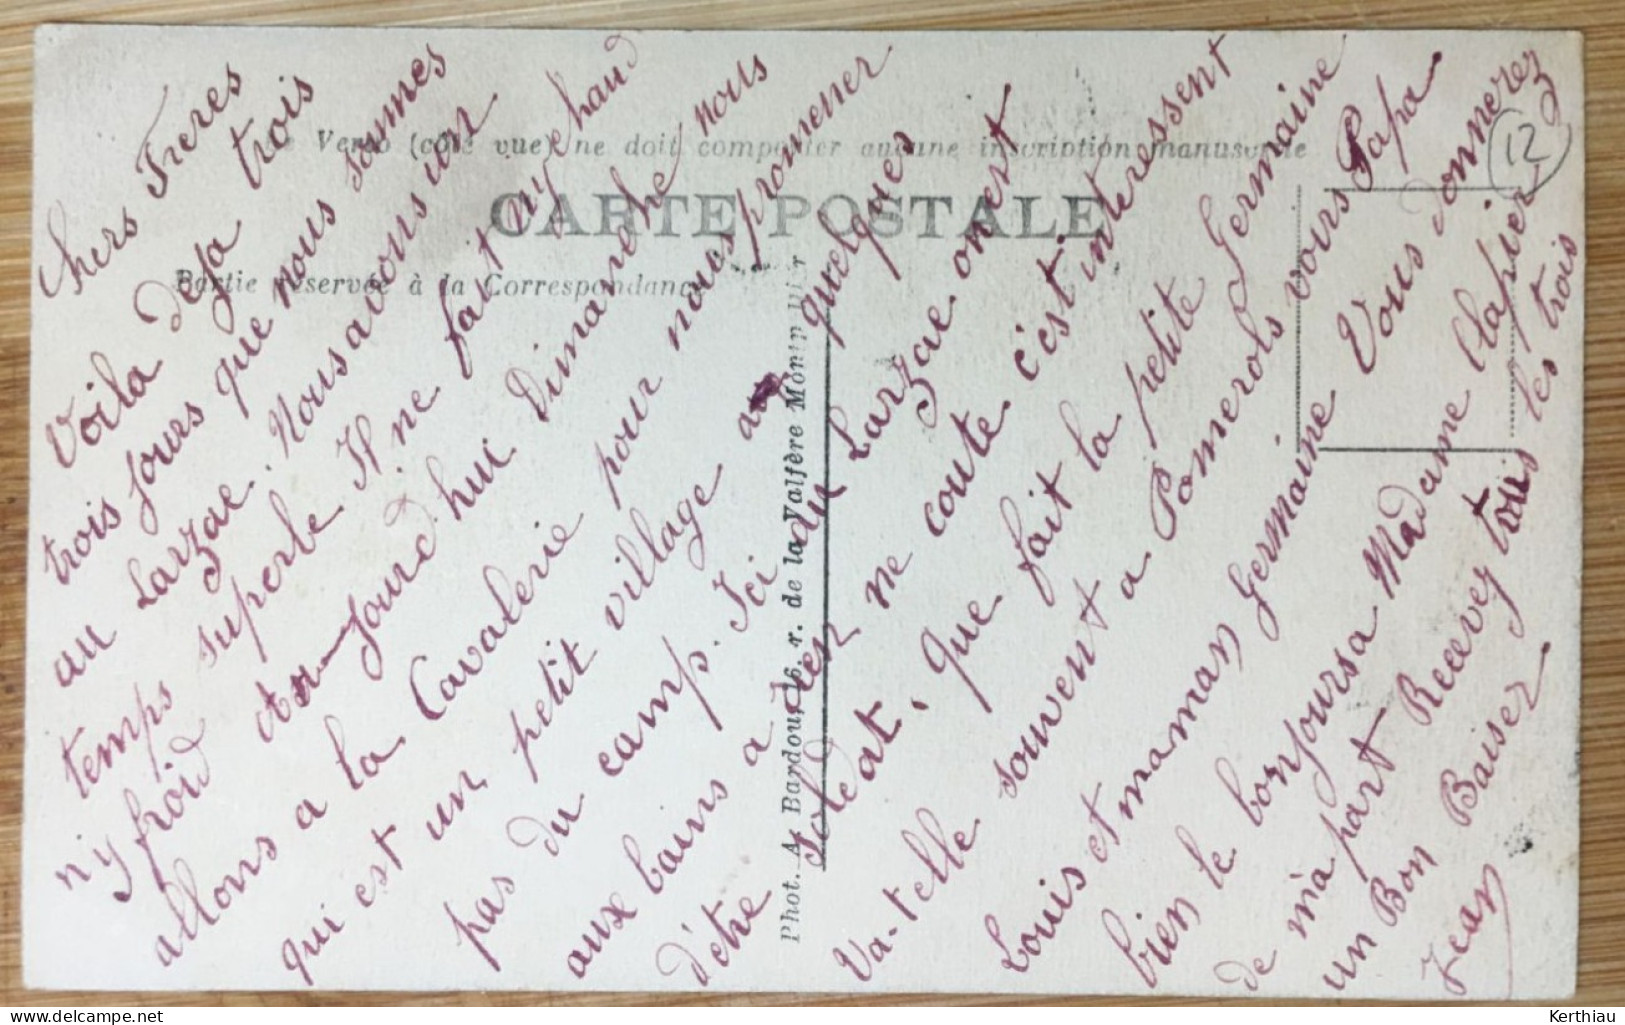 Le Verso (côté vue) ne doit comporter aucune inscription manuscrite
CARTE POSTALE
Partie réservée à la Correspondance
Phot. A. Bardou, 16, r. de la Valfère Montp
12
Chers Freres
Voila deja trois
trois jours que nous sommes
au Larzac. Nous avons un
temps superbe Il ne fait ny chaud
n'y froid Aujourd hui Dimanche nous
allons a la Cavalerie pour nous promener
qui est un petit village a quelques
pas du camp. Ici du Larzac on vert
aux bains a rien ne coute c'est interessent
d'être Soldat, que fait la petite Germaine
Va-telle souvent a Pomerols vours Papa
Louis et maman Germaine Vous donnerez
bien le bonjours a Madame Clapier
de ma part Recevez tous les trois
un Bon Baiser
Jean
Kerthiau